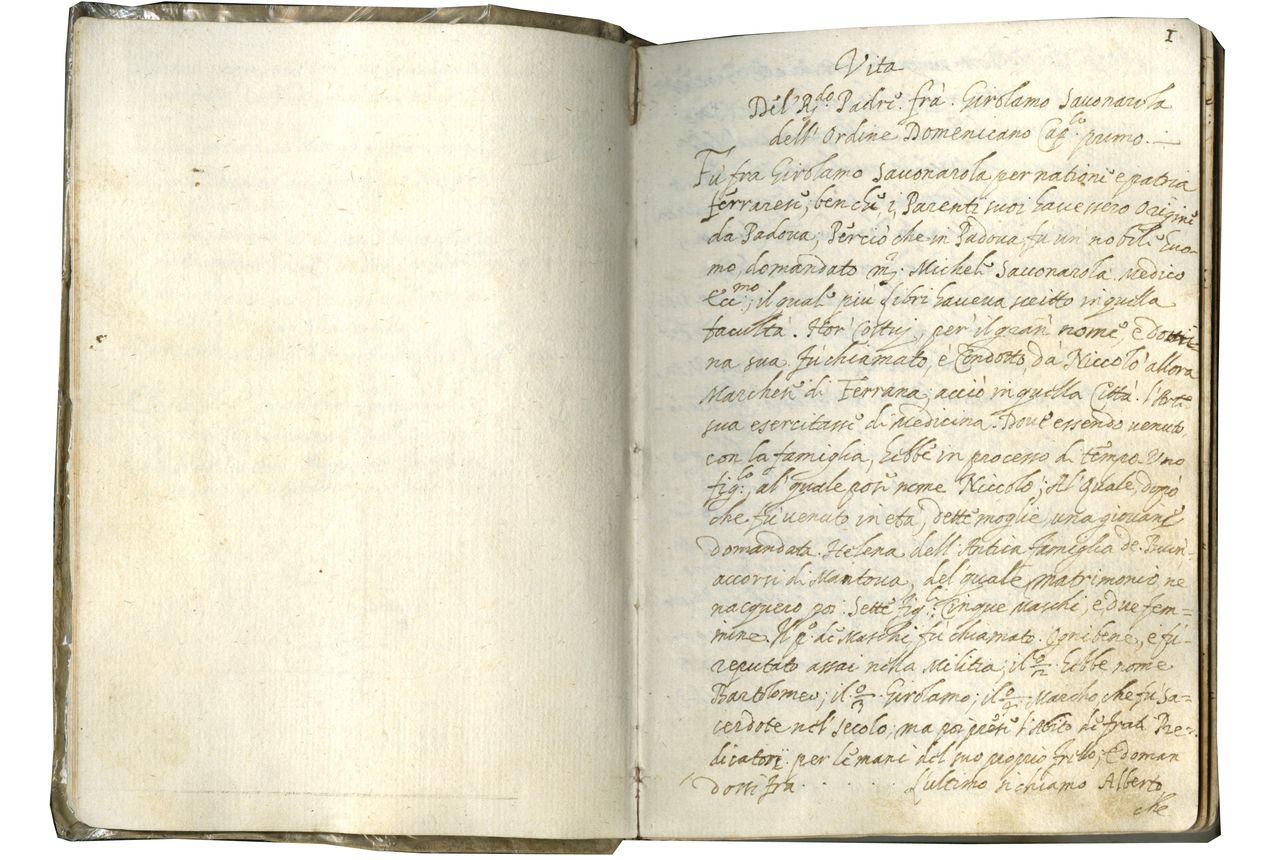 1
Vita
Del R.do Padre fra Girolamo Savonarola
dell'Ordine Domenicano Cap.lo primo.
Fù fra Girolamo Savonarola per natione e patria
ferrarese, ben che i Parenti suoi havessero Origine
da Padova, Perciò che in Padova fu un nobile huo-
mo domandato m. Michele Savonarola Medico
Ecc.mo, il quale più libri haveva scritto in quella
facultà. Hor Costuj per il gran nome, e Dottri=
na sua fù chiamato, e Condotto da Niccolò allora
Marchese di Ferrara, acciò in quella Città l'Arte
sua esercitasse di Medicina. Dove essendo venuto
con la famiglia, hebbe in processo di tempo Uno
fig.lo, al quale pose nome Niccolo; Al quale, dopo
che fù venuto in età, dette moglie, una giovane
domandata Helena dell'Antica famiglia de Buon-
accorsi di Mantova, del quale matrimonio ne
nacquero poi Sette fig.li Cinque maschi, e due fem=
mine. Il p.o de Maschi fù chiamato Ognibene, e fù
reputato assai nella Militia; il 2.o hebbe nome
Bartolomeo; il 3.o Girolamo; il 4.o Marcho, che fù Sa=
cerdote nel secolo, ma poi prese l'Abito de frati Pre-
dicatori per le mani del suo proprio fr.llo, e doman
dossi fra . . . . . . L'ultimo si chiamò Alberto
che